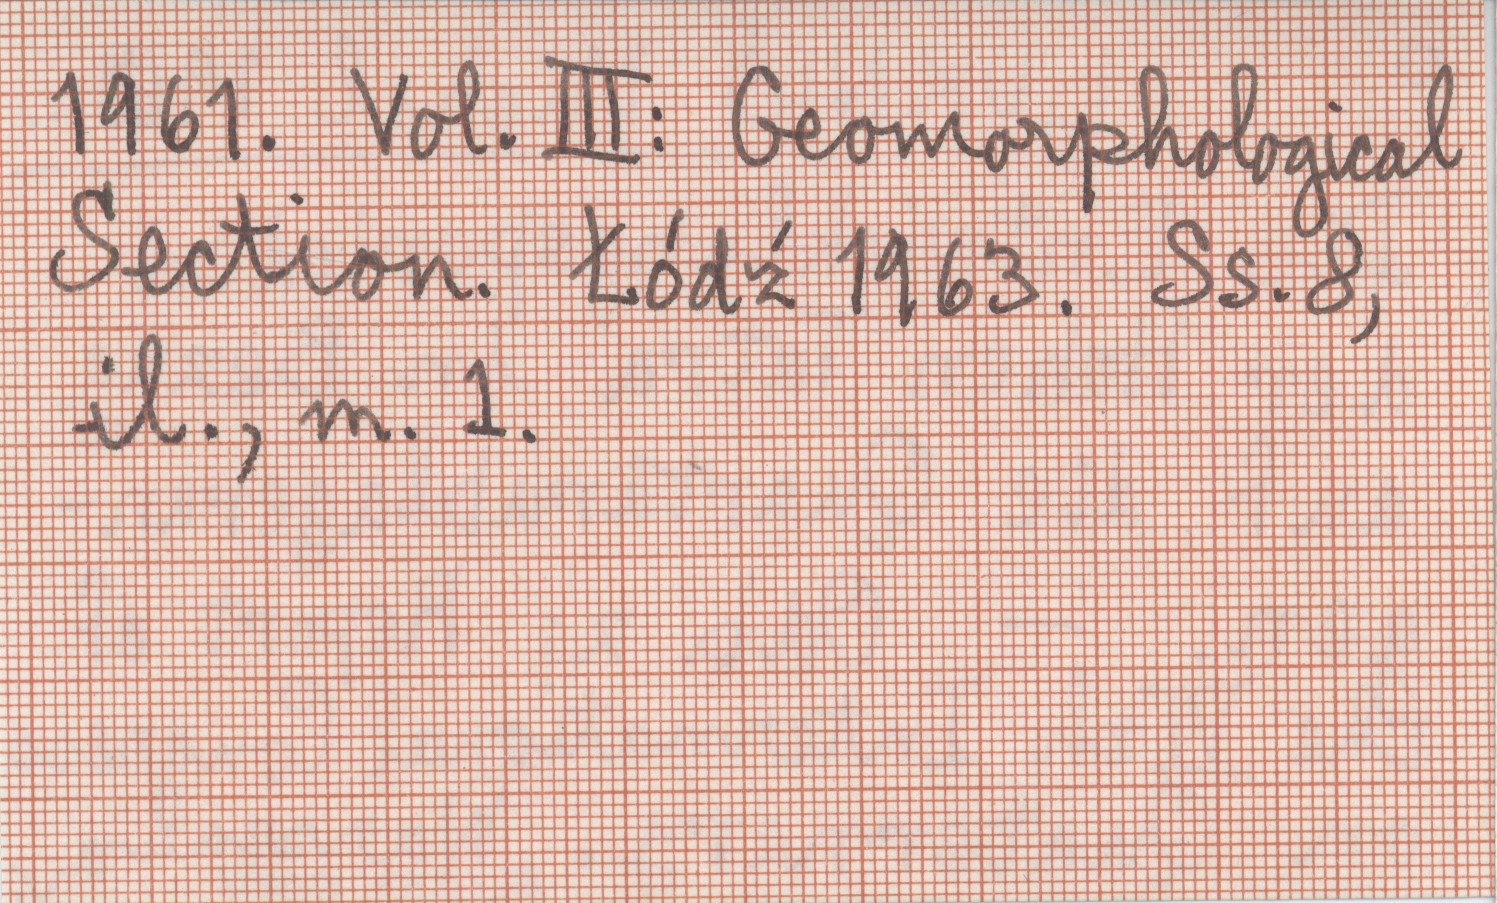 1961. Vol. III: Geomorphological
Section. Łódź 1963. Ss. 8,
il., m. 1.